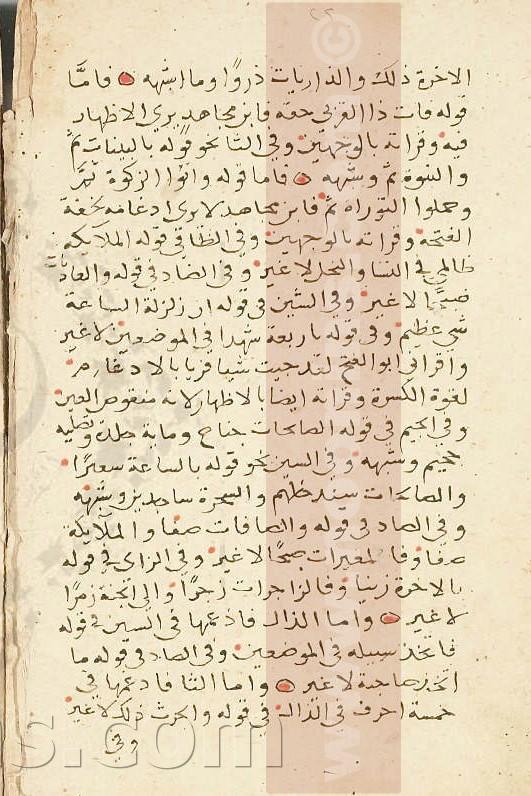 الاخرة ذلك والذاريات ذروا وما اشبهه فاما
قوله فات ذا القربى حقه فابن مجاهد يرى الاظهار
فيه وقراته بالوجهين وفي الثا نحو قوله بالبينات ثم
والنبوة ثم وشبهه فاما قوله واتوا الزكوة ثم
وحملوا التوراه ثم فابن مجاهد لا يرى ادغامه لخفة
الفتحة وقراته بالوجهين وفي الظا في قوله الملايكة
ظالمي في النسا والنحل لا غير وفي الضاد في قوله والعاديات
ضبحا لا غير وفي الشين في قوله ان زلزلة الساعة
شي عظيم وفي قوله باربعة شهدا في الموضعين لا غير
واقراني ابو الفتح لقد جيت شيا فريا بالادغام
لقوة الكسرة وقراته ايضا بالاظهار لانه منقوص العين
وفي الجيم في قوله الصالحات جناح وماية جلدة وتصليه
جحيم وشبهه وفي السين نحو قوله بالساعة سعيرا
والصالحات سيدخلهم والسحرة ساجدين وشبهه
وفي الصاد في قوله والصافات صفا والملايكة
صفا وفالمغيرات صبحا لا غير وفي الزاى في قوله
بالاخرة زينا وفالزاجرات زجرا والى الجنة زمرا
لا غير واما الذال فادغمها في السين في قوله
فاتخذ سبيله في الموضعين وفي الصاد في قوله ما
اتخذ صاحبة لا غير واما الثا فادغمها في
خمسة احرف في الذال في قوله والحرث ذلك لا غير
وفي
s.com